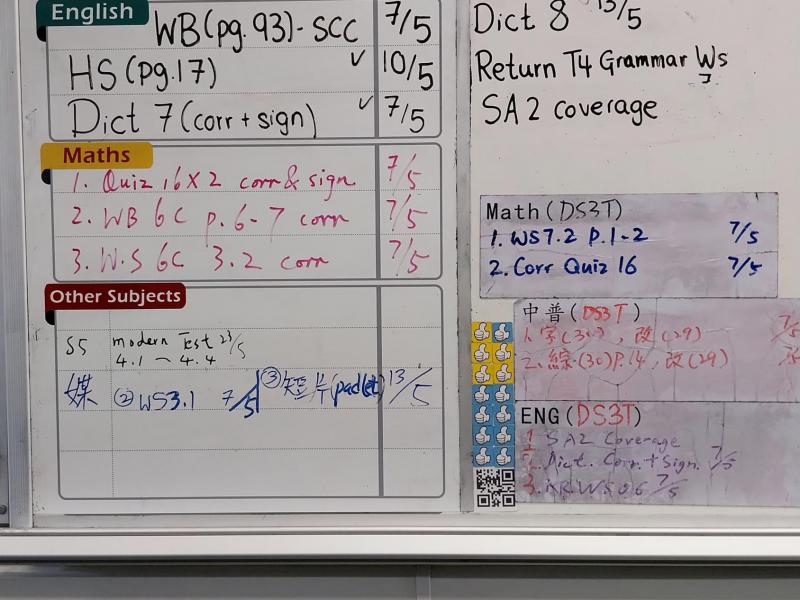 English
WB(pg.93)-SCC 7/5
HS(pg.17) ✓ 10/5
Dict 7(corr+sign) ✓ 7/5
Maths
1. Quiz 16X2 corr & sign 7/5
2. WB 6C p.6-7 corr 7/5
3. W.S 6C 3.2 corr 7/5
Other Subjects
SS modern Test 23/5
4.1 ~ 4.4
媒 ②WS3.1 7/5 ③短片(padlet) 13/5
Dict 8 13/5
Return T4 Grammar Ws
7
SA2 coverage
Math(DS3T)
1. WS7.2 P.1-2 7/5
2. Corr Quiz 16 7/5
中普(DS3T)
1.字(30), 改(29) 7/5
2.綜(30)P.14, 改(29)
ENG(DS3T)
1 SA2 Coverage
2. Dict. Corr.+Sign. 7/5
3. WS06 7/5